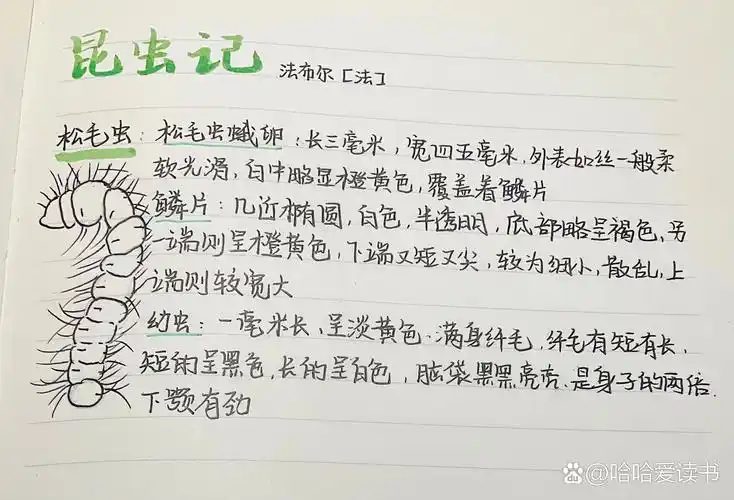 昆虫记 法布尔[法]
松毛虫:松毛虫蛾卵:长三毫米,宽四五毫米,外表如丝一般柔
软光滑,白中略显橙黄色,覆盖着鳞片
鳞片:几近椭圆,白色,半透明,底部略呈褐色,另
一端则呈橙黄色,下端又短又尖,较为细小,散乱,上
端则较宽大
幼虫:一毫米长、呈淡黄色.满身纤毛,纤毛有短有长,
短的呈黑色,长的呈白色,脑袋黑黑亮亮.是身子的两倍.
下颚有劲
@哈哈爱读书